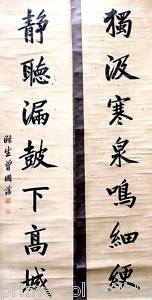 獨汲寒泉鳴細綆
靜聽漏鼓下高城
滌生曾國藩